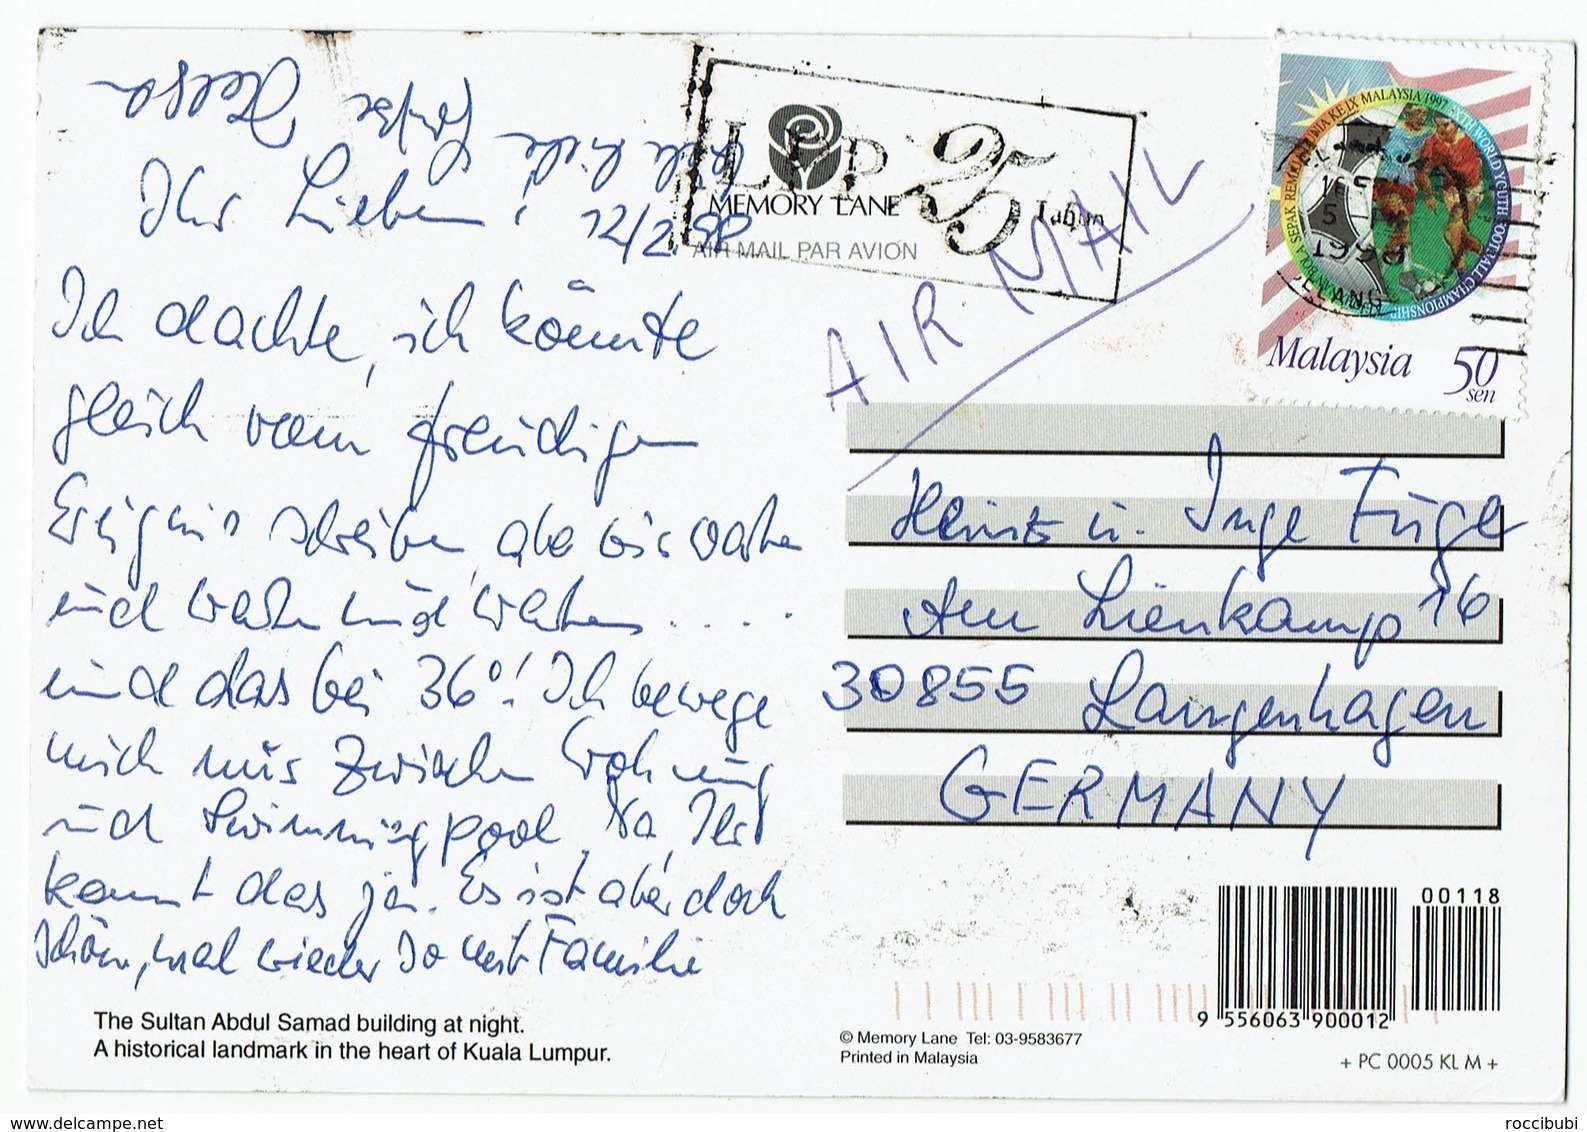 Ihr Lieben!
Ich dachte, ich könnte
gleich vom freudigen
Ereignis schreiben, aber wir warten
und warten und warten.....
und das bei 36°! Ich bewege
mich nur zwischen Wohnung
und Swimmingpool. Na, Ihr
kennt das ja. Es ist aber doch
schön, mal wieder so mit Familie
Liebe Grüße
The Sultan Abdul Samad building at night.
A historical landmark in the heart of Kuala Lumpur.
MEMORY LANE
AIR MAIL PAR AVION
25 Tahun
AIR MAIL
BOLA SEPAK REMAJA DUNIA KE IX MALAYSIA 1997 · IXTH WORLD YOUTH FOOTBALL CHAMPIONSHIP
Malaysia 50
sen
Heinz u. Inge Füger
Am Lienkamp 16
30855 Langenhagen
GERMANY
00118
9 556063 900012
© Memory Lane Tel: 03-9583677
Printed in Malaysia
+ PC 0005 KL M +
www.delcampe.net
roccibubi